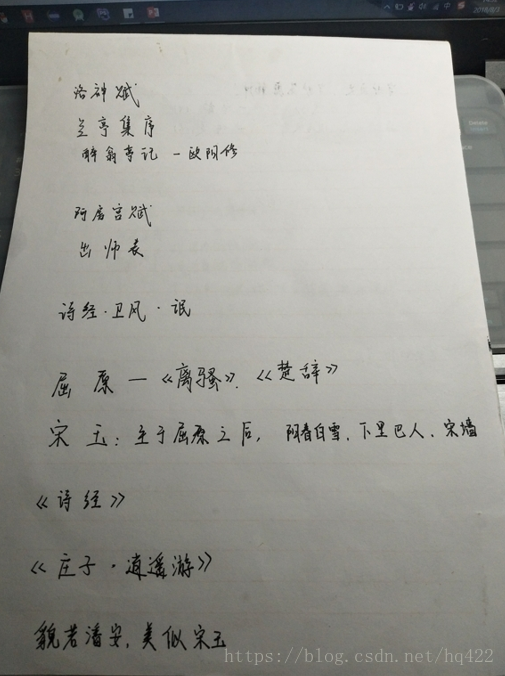 洛神赋
兰亭集序
醉翁亭记 - 欧阳修
阿房宫赋
出师表
诗经·卫风·氓
屈原 — 《离骚》、《楚辞》
宋玉：生于屈原之后， 阳春白雪、下里巴人、宋墙
《诗经》
《庄子·逍遥游》
貌若潘安，美似宋玉
https://blog.csdn.net/hq422